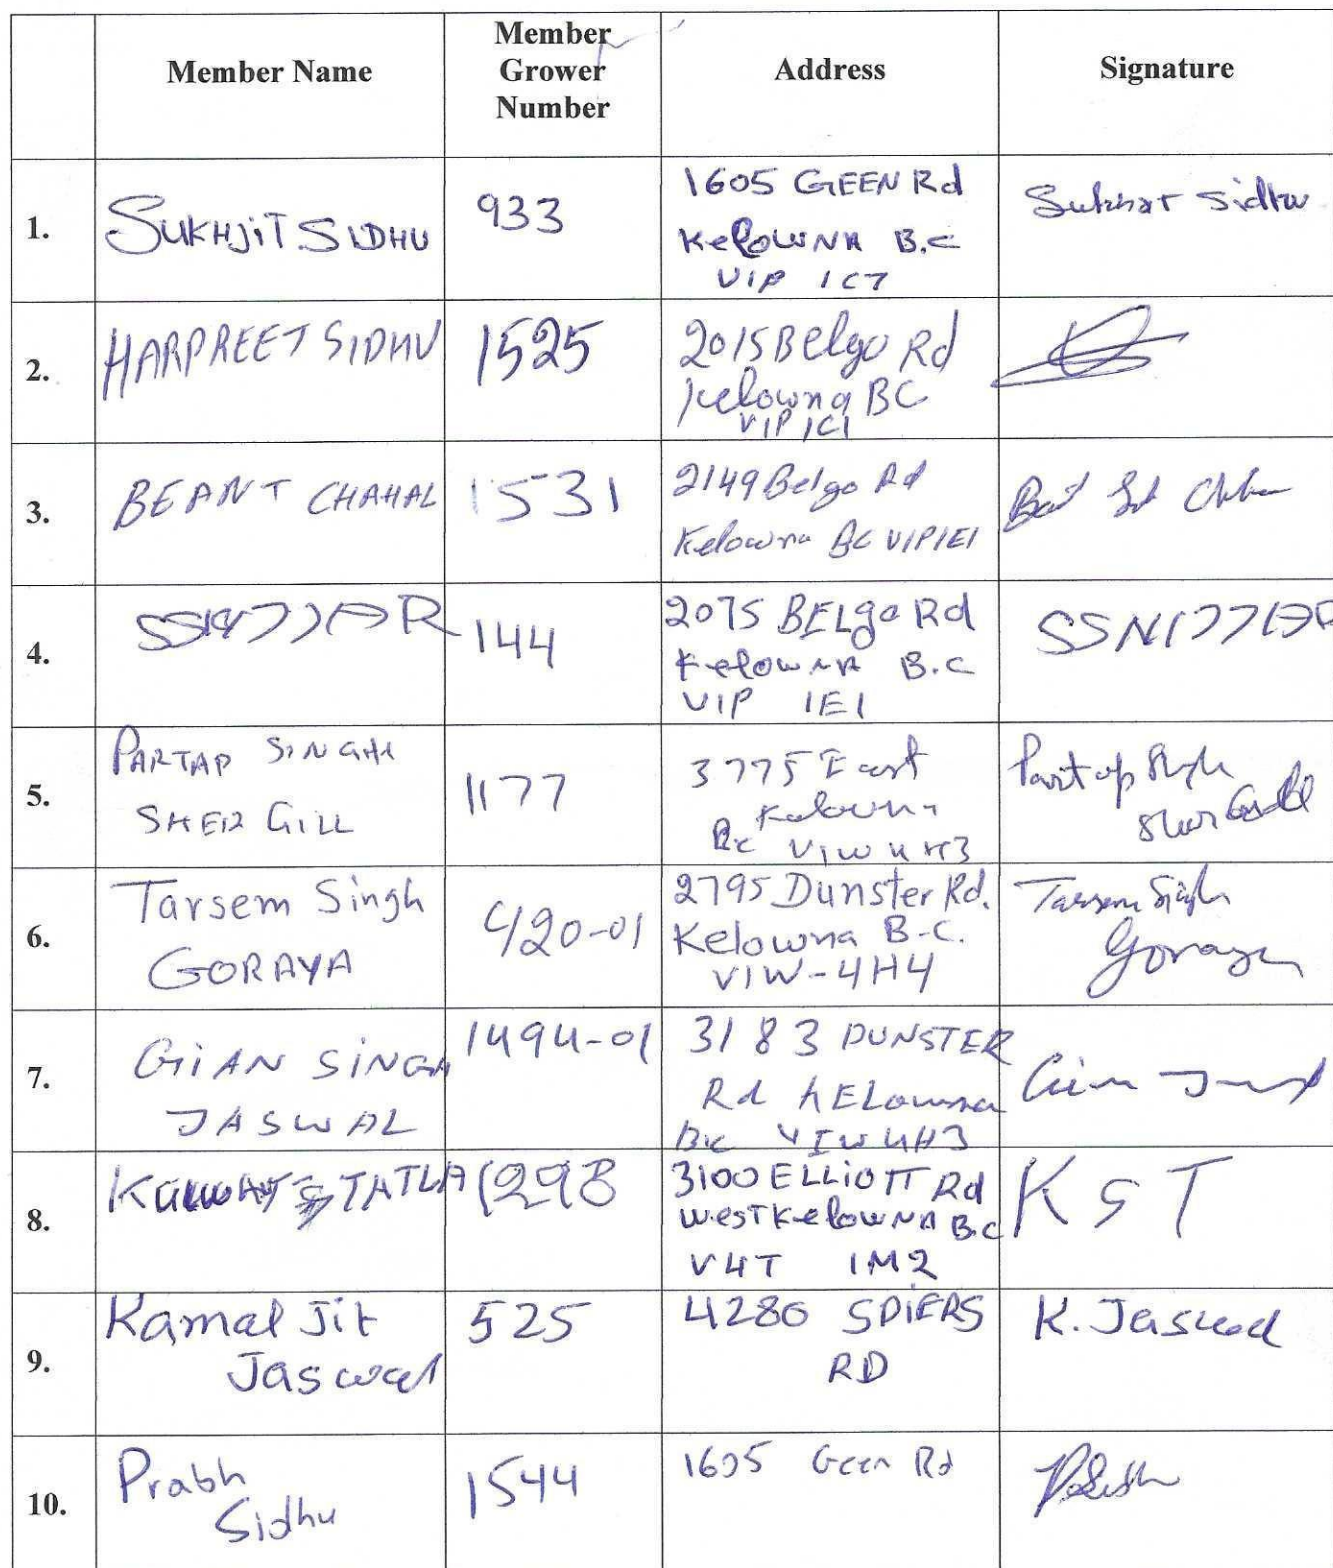 Member Name
Member
Grower
Number
Address
Signature
1.
SUKHJIT SIDHU
933
1605 GEEN Rd
Kelowna B.C
V1P 1C7
Sukhjit Sidhu
2.
HARPREET SIDHU
1525
2015 Belgo Rd
Kelowna BC
V1P 1C1
3.
BEANT CHAHAL
1531
2149 Belgo Rd
Kelowna BC V1P1E1
4.
144
2075 BELgo Rd
Kelowna B.C
V1P 1E1
5.
PARTAP SINGH
SHER GILL
1177
3775 East
Kelowna
Bc V1W 4H3
Partap Singh
Sher Gill
6.
Tarsem Singh
GORAYA
420-01
2795 Dunster Rd.
Kelowna B-C.
V1W-4H4
Tarsem Singh
Goraya
7.
GiAN SiNGH
JASWAL
1494-01
3183 DUNSTER
Rd KELowna
Bc V1W 4H3
8.
TATLA
1298
3100 ELLiOTT Rd
WesT Kelowna B.C
V4T 1M2
K S T
9.
Kamal Jit
Jaswal
525
4280 SPiERS
RD
K. Jaswal
10.
Prabh
Sidhu
1544
1605 Geen Rd